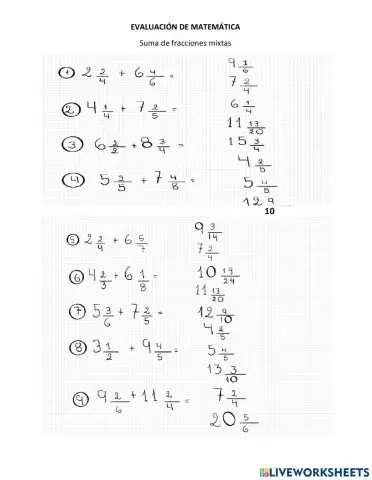 EVALUACIÓN DE MATEMÁTICA
Suma de fracciones mixtas
① 2 2/4 + 6 4/6 =
② 4 1/4 + 7 2/5 =
③ 6 2/2 + 8 3/4 =
④ 5 2/5 + 7 4/8 =
9 1/6
7 2/4
6 1/4
11 13/20
15 3/4
4 2/5
5 4/5
12 9
10
⑤ 2 2/4 + 6 5/7
⑥ 4 2/3 + 6 1/8 =
⑦ 5 3/6 + 7 2/5 =
⑧ 3 1/2 + 9 4/5 =
⑨ 9 2/6 + 11 2/4 =
9 3/14
7 2/4
10 19/24
11 13/20
12 9/10
4 2/5
5 4/5
13 3/10
7 2/4
20 5/6
LIVEWORKSHEETS